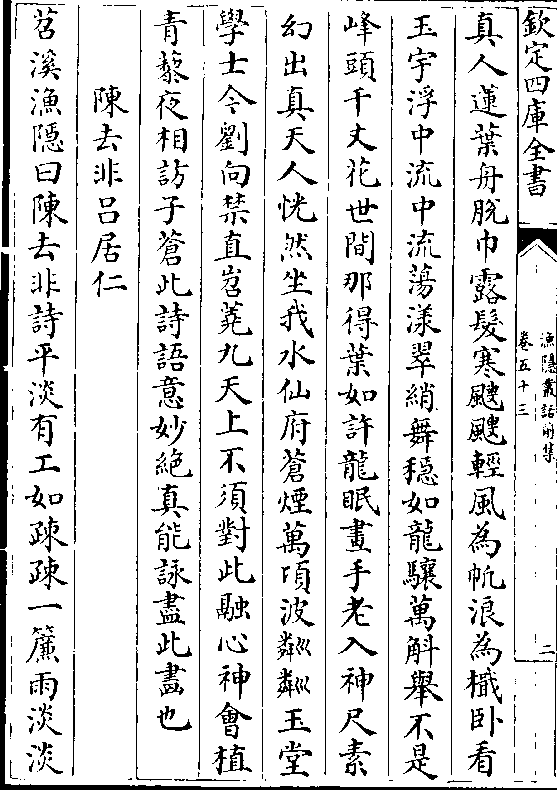 欽定四庫全書
漁隱叢話前集
卷五十三
二
真人蓮葉舟脫巾露髮寒颼颼輕風為帆浪為檝卧看
玉宇浮中流中流蕩漾翠綃舞穏如龍驤萬斛舉不是
峰頭千丈花世間那得葉如許龍眠畫手老入神尺素
幻出真天人恍然坐我水仙府蒼煙萬頃波粼粼玉堂
學士今劉向禁直岧嶤九天上不須對此融心神會植
青藜夜相訪子蒼此詩語意妙絶真能詠盡此畵也
陳去非吕居仁
苕溪漁隱曰陳去非詩平淡有工如疎疎一簾雨淡淡